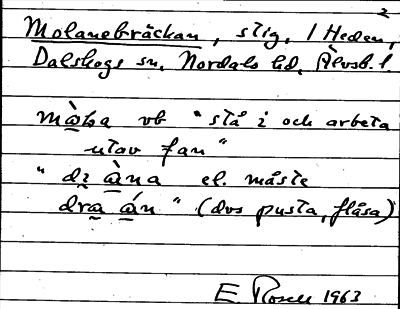 2
Molanebräckan, stig, 1 Heden,
Dalskogs sn, Nordals hd, Älvsb. l.
màka vb "stå i och arbeta
utav fan"
"di àna el. måste
dra án" (dvs pusta, flåsa)
E. Rosell 1963